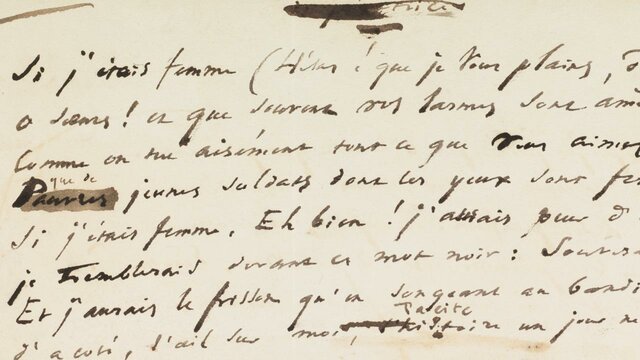 Si j'étais femme (Hélas ! que je vous plains, ô
o sœurs ! et que souvent vos larmes sont am
Comme on tue aisément tout ce que vous aimez
que de
Pauvres jeunes soldats dont les yeux sont fer
Si j'étais femme, Eh bien ! j'aurais peur d
je tremblerais devant ce mot noir : Souvera
Et j'aurais le frisson qu'en songeant au bandi
Tacite
d'à côté, l'œil sur moi, l'histoire un jour me